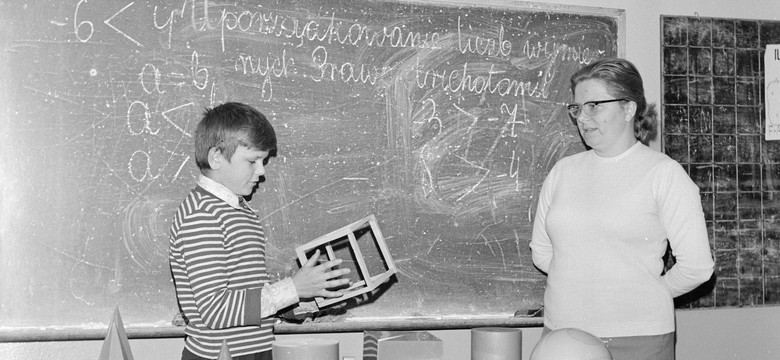 -6 < 4 Uporządkowanie liczb wymier
nych. Prawo trichotomii
a = b,
a <
a >
3 > -7
> -4